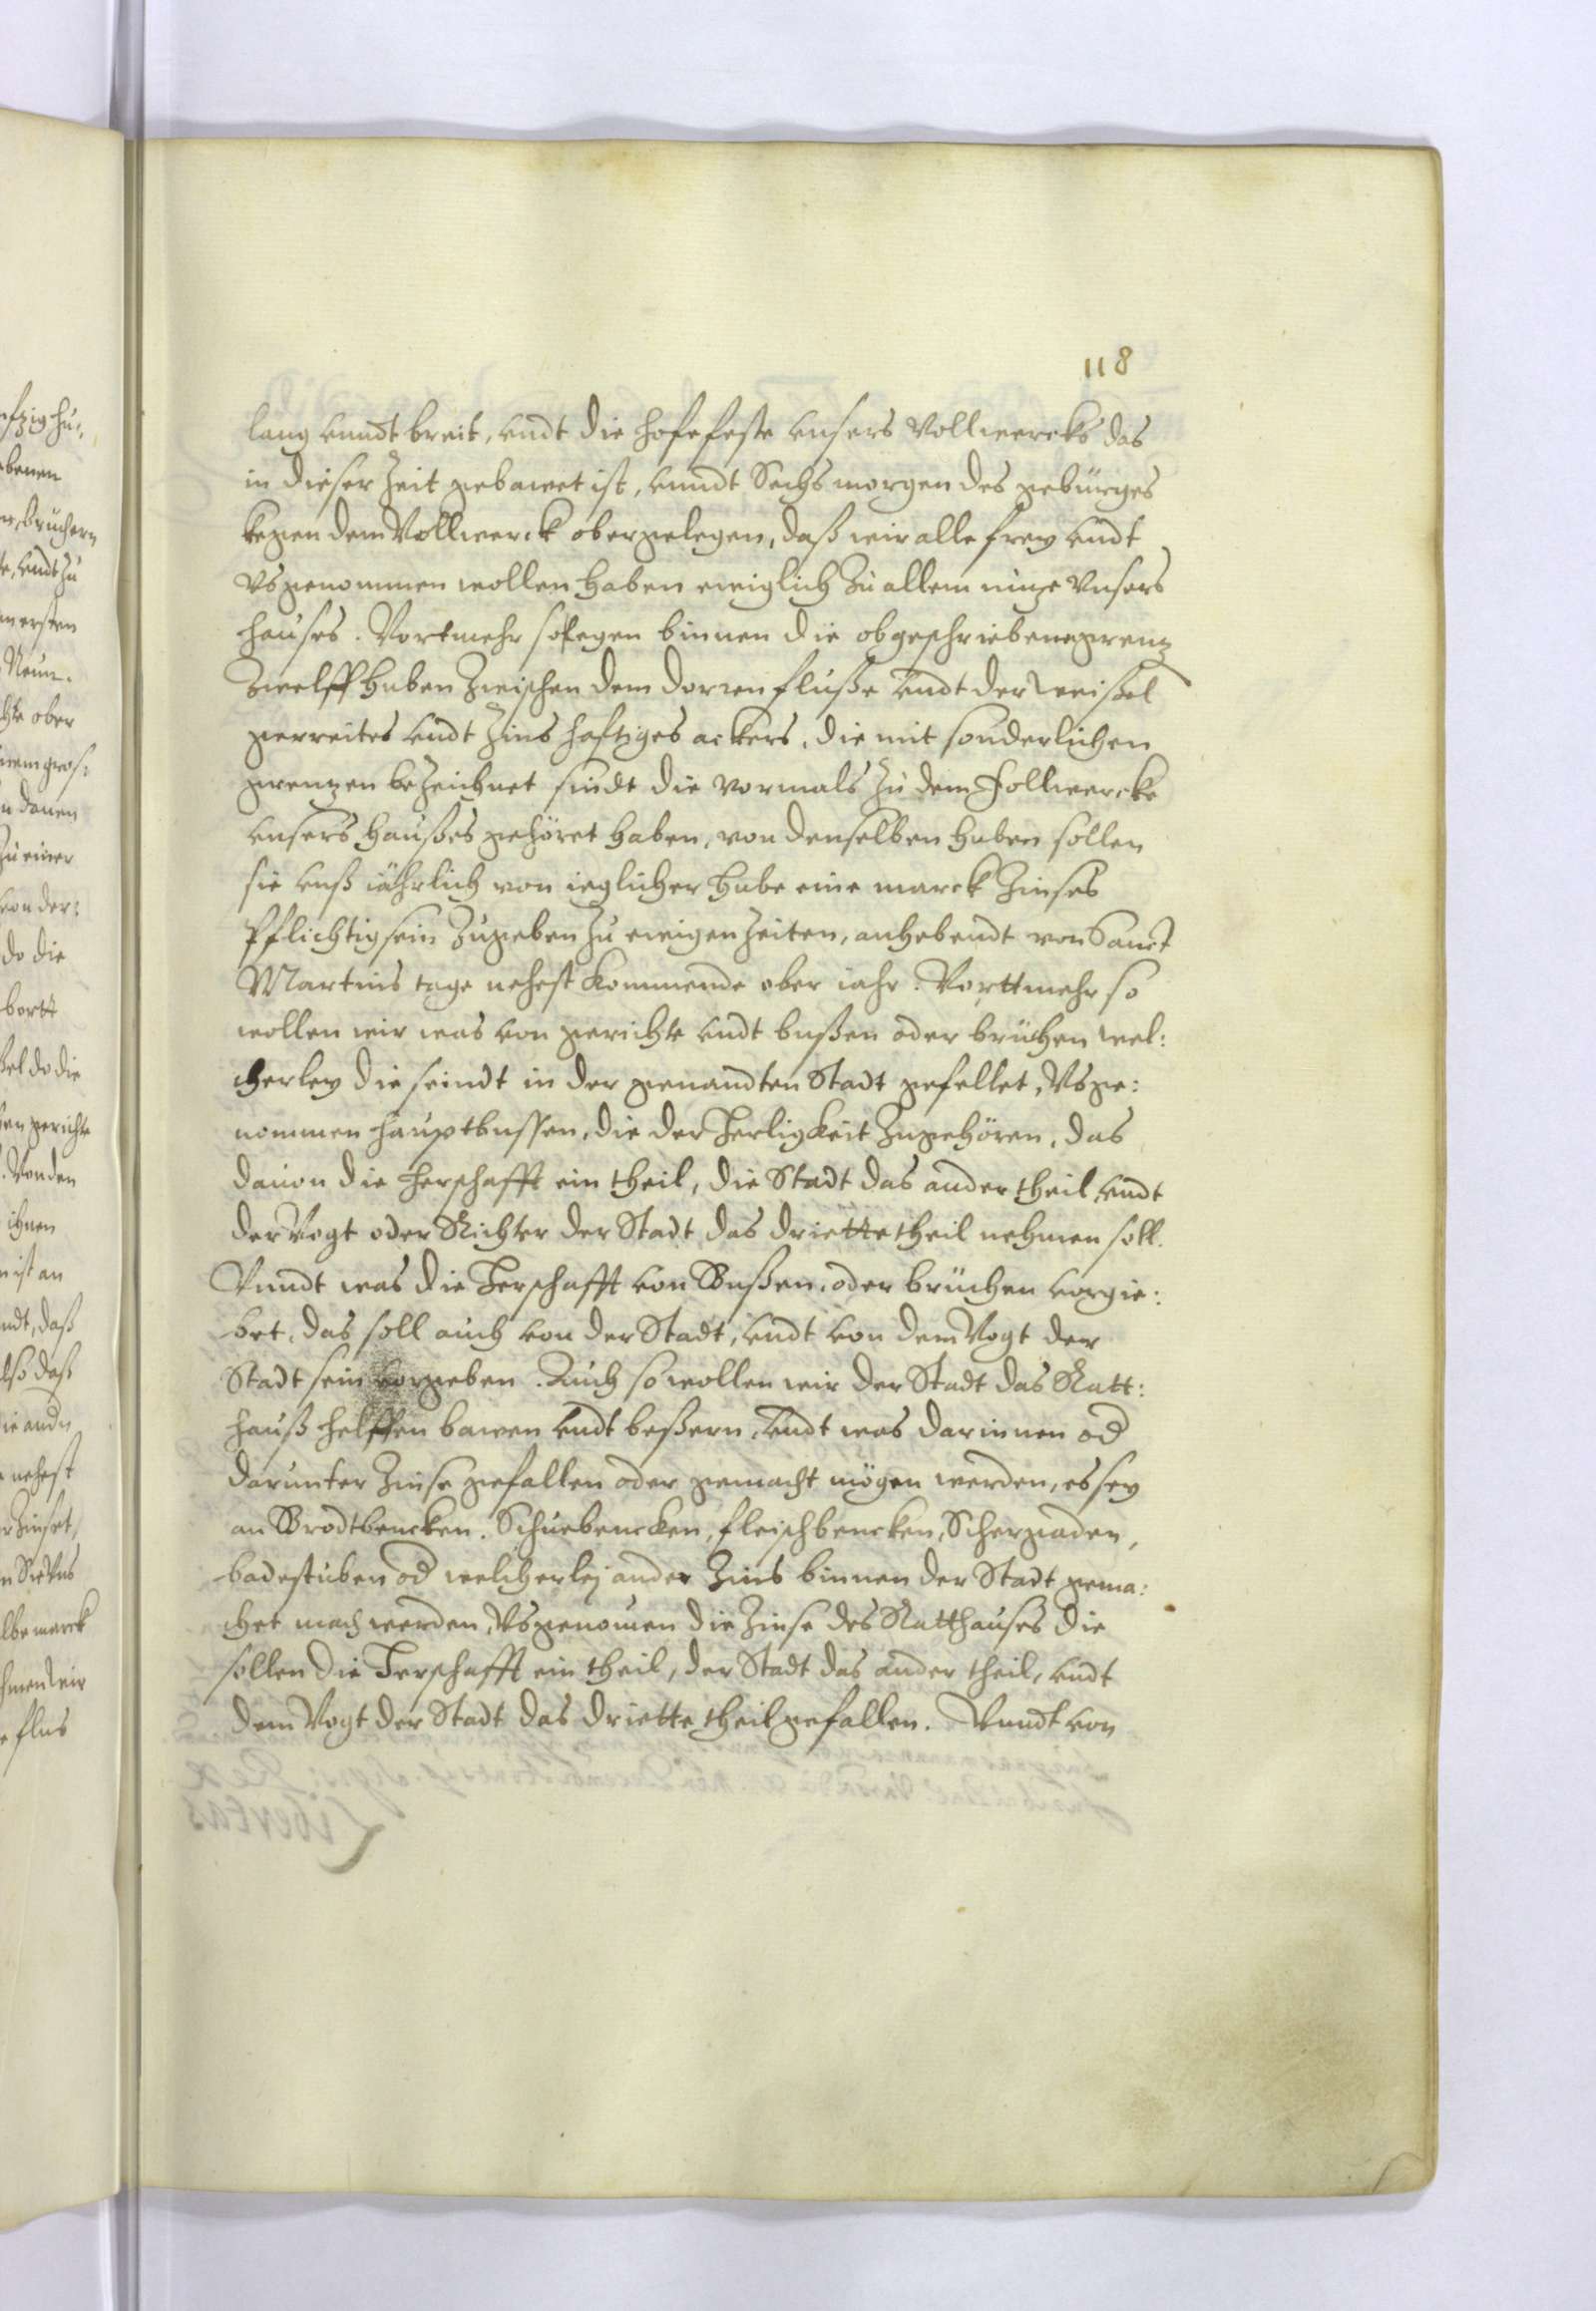 118
lang unndt breit, undt die hofefeste unsers Vollwercks das
in dieser Zeit gebawet ist, unndt Sechs morgen des gebürges
kegen dem Vollwerck obergelegen, daß wir alle frey undt
Usgenommen wollen haben ewiglich zu allem nuze Unsers
hauses. Vortmehr so legen binnen die obgeschriebene grenz
Zwelff huben Zwischen dem dorren fluße undt der weißel
gereites undt Zinshafftiges ackers, die mit sonderlichen
grenzen bezeichnet sindt die vormals zu dem Follwercke
unsers haußes gehöret haben, von denselben huben sollen
sie unß iährlich von ieglicher hube eine marck Zinses
Pflichtig sein zugeben zu ewigen Zeiten, anhebendt von Sanct
Martins tage nehest kommende ober iahr. Vorttmehr so
wollen wir was von gerichte undt bußen oder brüchen wel:
cherley die seindt in der genandten Stadt gefellet, Usge:
nommen hauptbussen, die der Herligkeit zugehören, das
dauon die herschafft ein theil, die Stadt das ander theil, undt
der Vogt oder Richter der Stadt das driette theil nehmen soll.
Vnndt was die Herschafft von Bußen oder brüchen vorgie:
bet, das soll auch von der Stadt, undt von dem Vogt der
Stadt sein vorgeben. Auch so wollen wir der Stadt das Ratt:
hauß helffen bawen undt beßern, undt was darinnen od
darunter Zinse gefallen oder gemacht mögen werden, es sey
an Brodtbencken, Schuebencken, fleischbencken, Schergaden,
badestuben od welcherley ander Zins binnen der Stadt gema:
chet mach werden, Usgenomen die Zinse des Ratthauses die
sollen die Herschafft ein theil, der Stadt das ander theil, undt
dem Vogt der Stadt das driette theil gefallen. Vnndt von